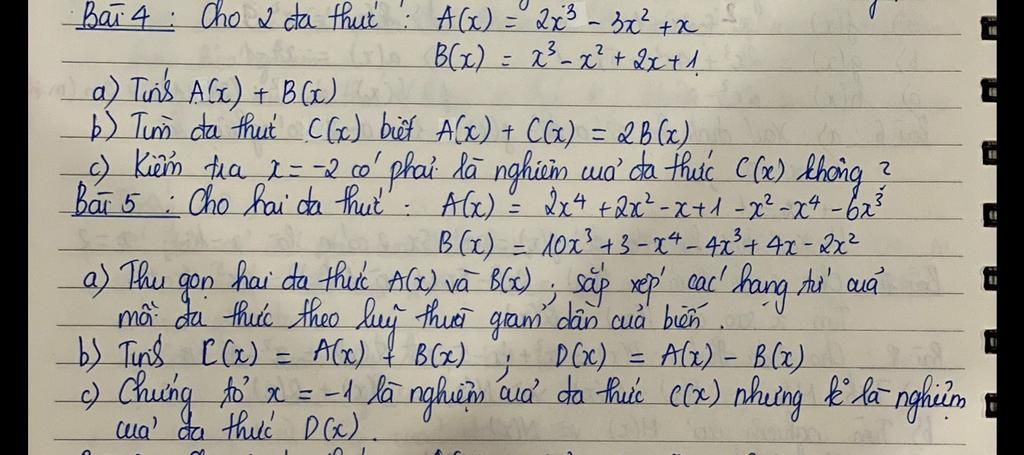 Bài 4 : Cho 2 đa thức : A(x) = 2x³ - 3x² + x
B(x) = x³ - x² + 2x + 1
a) Tính A(x) + B(x)
b) Tìm đa thức C(x) biết A(x) + C(x) = 2B(x)
c) Kiểm tra x = -2 có phải là nghiệm của đa thức C(x) không ?
Bài 5 : Cho hai đa thức : A(x) = 2x⁴ + 2x² - x + 1 - x² - x⁴ - 6x³
B(x) = 10x³ + 3 - x⁴ - 4x³ + 4x - 2x²
a) Thu gọn hai đa thức A(x) và B(x) ; sắp xếp các hạng tử của
mỗi đa thức theo luỹ thừa giảm dần của biến .
b) Tính C(x) = A(x) + B(x) ; D(x) = A(x) - B(x)
c) Chứng tỏ x = -1 là nghiệm của đa thức C(x) nhưng k° là nghiệm
của đa thức D(x) .